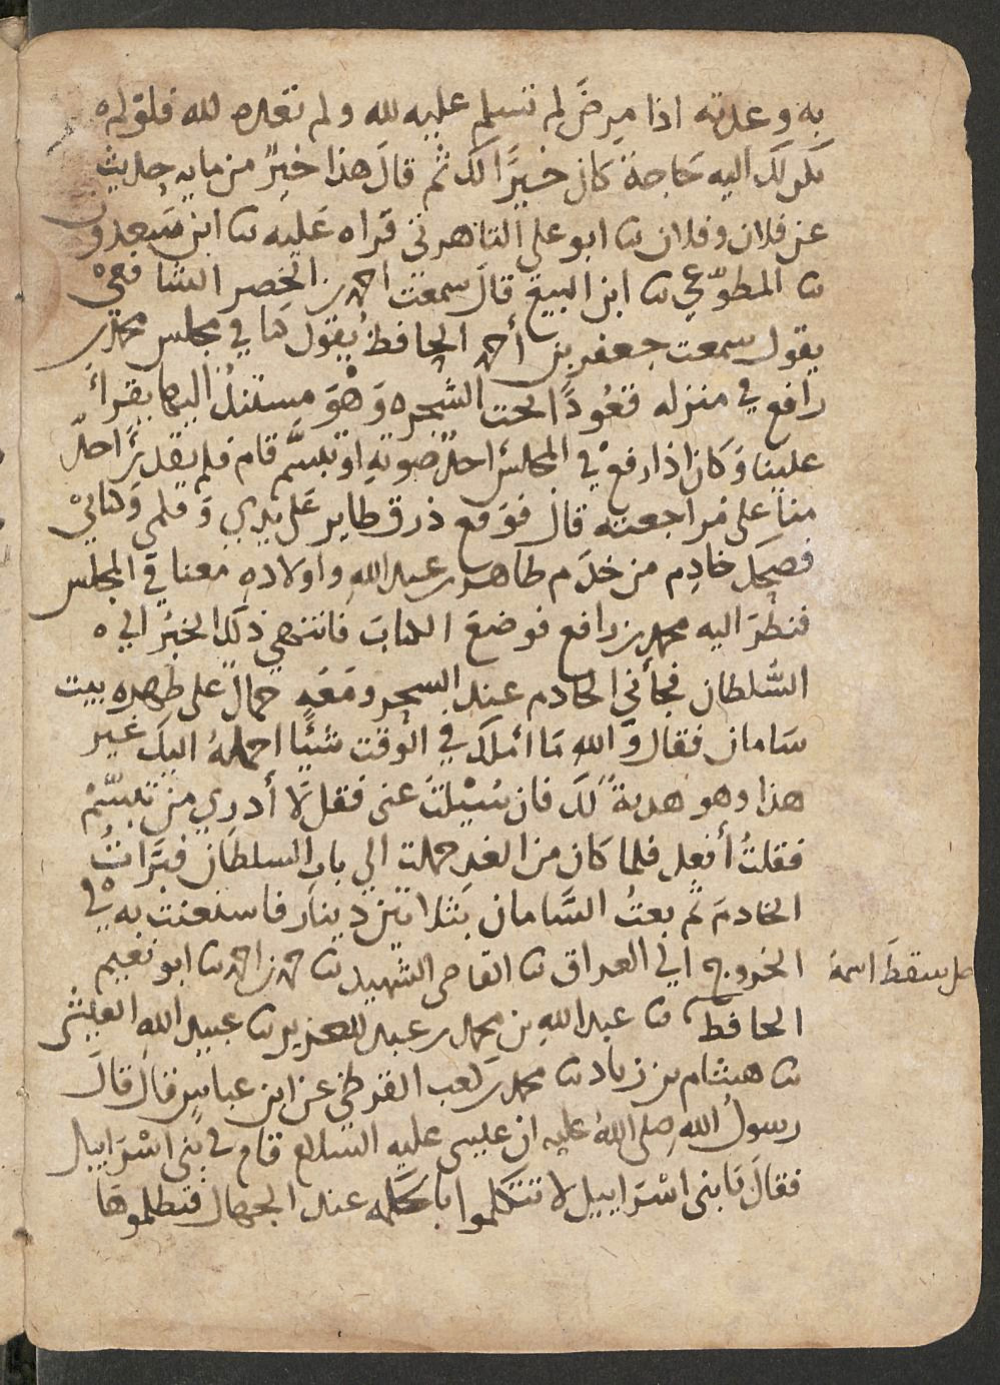 به وعدته اذا مرضَ لم تسلم عليه لله ولم تعده لله فلو لم ه
يكن لك اليه حَاجة كان خيرًا لك ثم قالَ هذا خيرٌ من مايه حديث
عن فلان وفلان نا ابو علي التاهرتى قراه عَليه نا ابن سَعدون
نا المطوّعي نا ابن البيع قال سمعت احمد بن الخضر الشافعيْ
يقول سمعت جعفر بن أحمد الحافظ يقول كنا في مجلس محمد بن
رافع في منزله قعُودًا تحت الشجره وَهْوَ مستندٌ اليها يقرأُ
علينا وَكان اذا رفعْ في المجلس احدٌ صوته او تبسَّم قام فلم يقدر احدٌ
منا على مراجعته قال فوقع ذرق طاير على يدي وَقلمى وَكتابيْ
فضحكَ خادم من خدَم طاهر بن عبد الله واولاده معنا في المجلس
فنظرَ اليه محمد بن رافع فوضعَ الكتابَ فانتهى ذلك الخبرُ الى ه
السُّلطان فجأني الخادم عند السحر ومَعَه حمالٌ على ظهره بيت
سَامان فقال وَالله مَا املك في الوقت شيئًا احملهُ اليك غير
هذا وهو هديةٌ لك فان سُيْلتَ عنى فقل لَا أدري من تبسَّمْ
فقلتُ أفعل فلما كان من الغدِ حملت الى بابِ السلطان فبرَّاتُ
الخادمَ ثم بعتُ السَّامان بثلاثين دينار فاستعنت به في
الخروج الى العراق نا القاضى الشهيد نا حمد بن احمد نا ابو نعيم
صل سقطَ اسمهُ
الحافظ نا عبد الله بن محمد بن عبد العزيز نا عبيد الله العيشى
نا هشام بن زياد نا محمد بن كعب القرظي عن ابن عباسٍ قال قالَ
رسولُ الله صلى اللهُ عليه ان عيسى عليه السلام قام في بنى اسْرَاييل
فقالَ يَا بنى اسْرَاييل لا تتكلموا بالحكمه عند الجهال فتظلموهَا